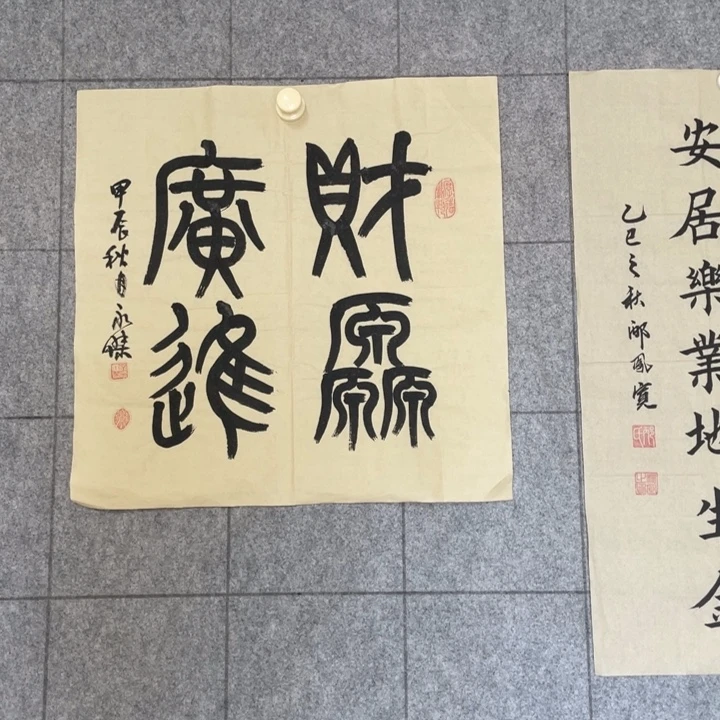 財厵
廣進
甲辰秋月永
安居樂業地生金
乙巳之秋邴鳳寬